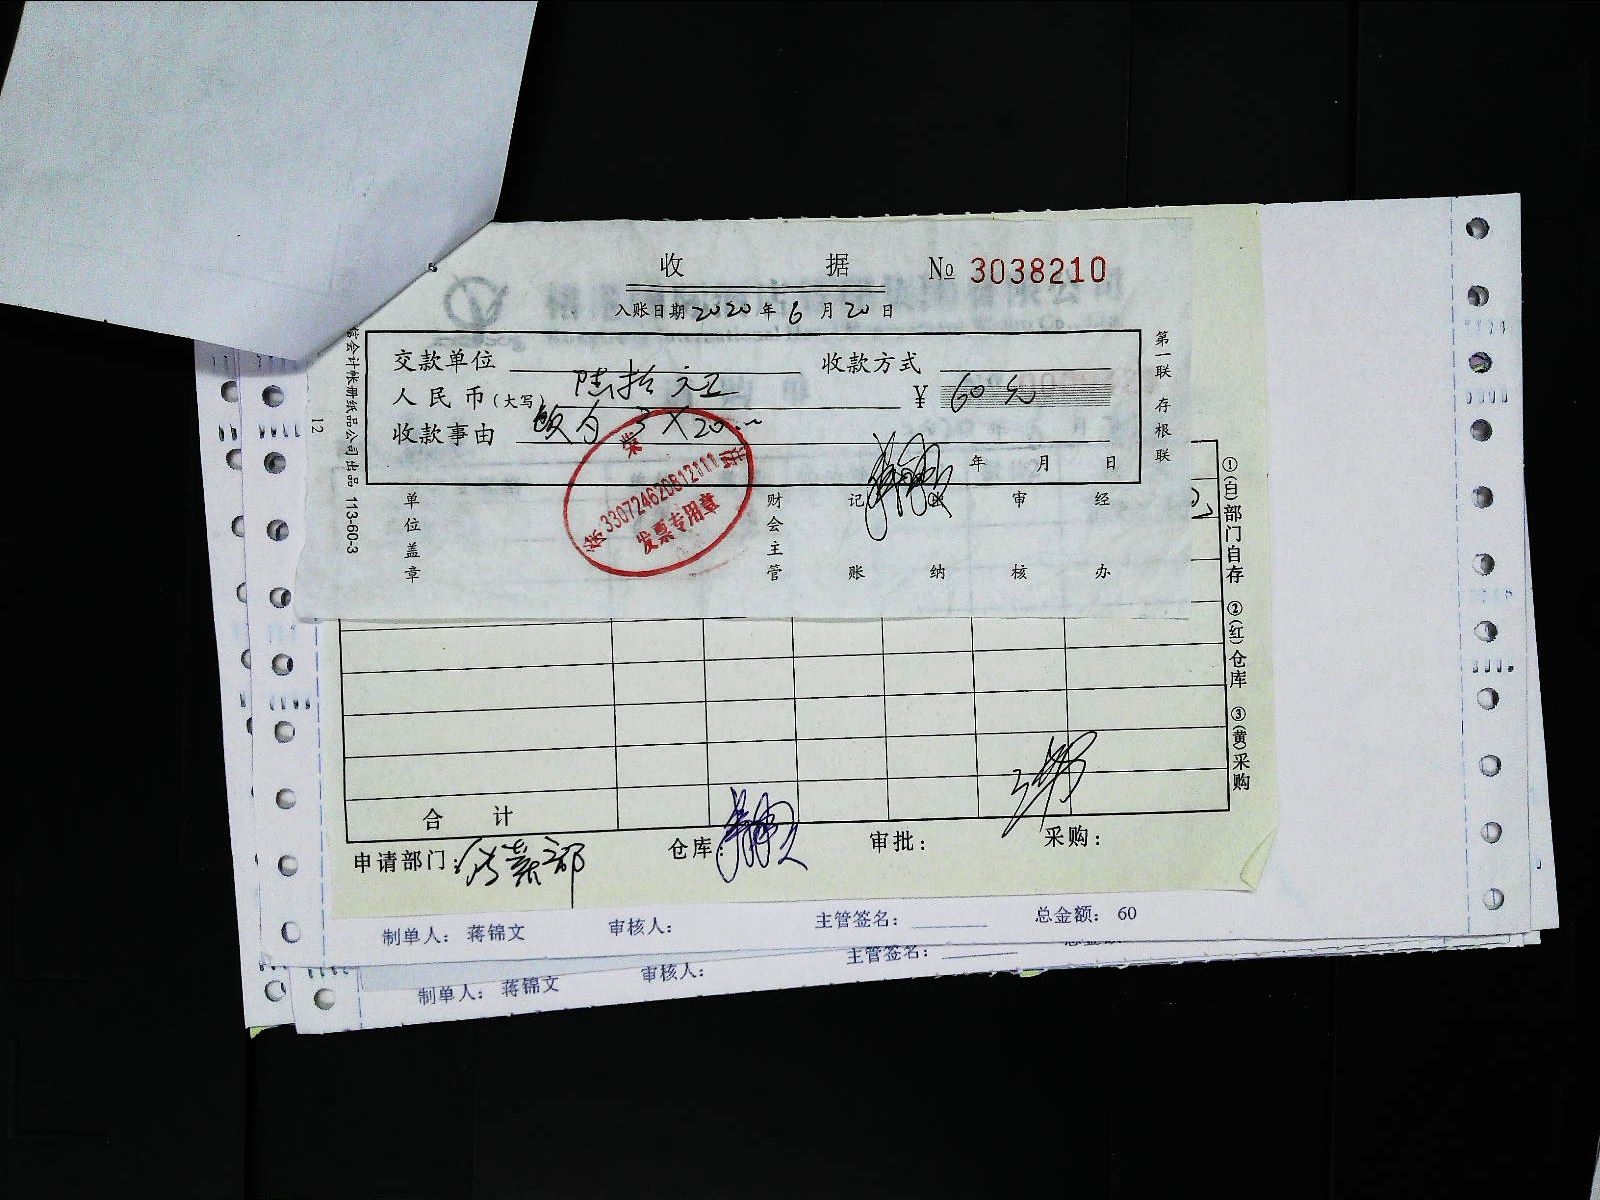 收 据 № 3038210
入账日期 2020 年 6 月 20 日
交款单位 收款方式
人民币(大写) 陆拾元正 ¥ 60元
收款事由 3×20
年 月 日
第一联 存根联
会计帐册纸品公司出品 113-60-3
12
单位盖章 财会主管 记账 出纳 审核 经办
330724620812111
发票专用章
①(白)部门自存 ②(红)仓库 ③(黄)采购
合 计
申请部门: 仓库: 审批: 采购:
制单人: 蒋锦文 审核人: 主管签名: 总金额: 60
制单人: 蒋锦文 审核人: 主管签名: